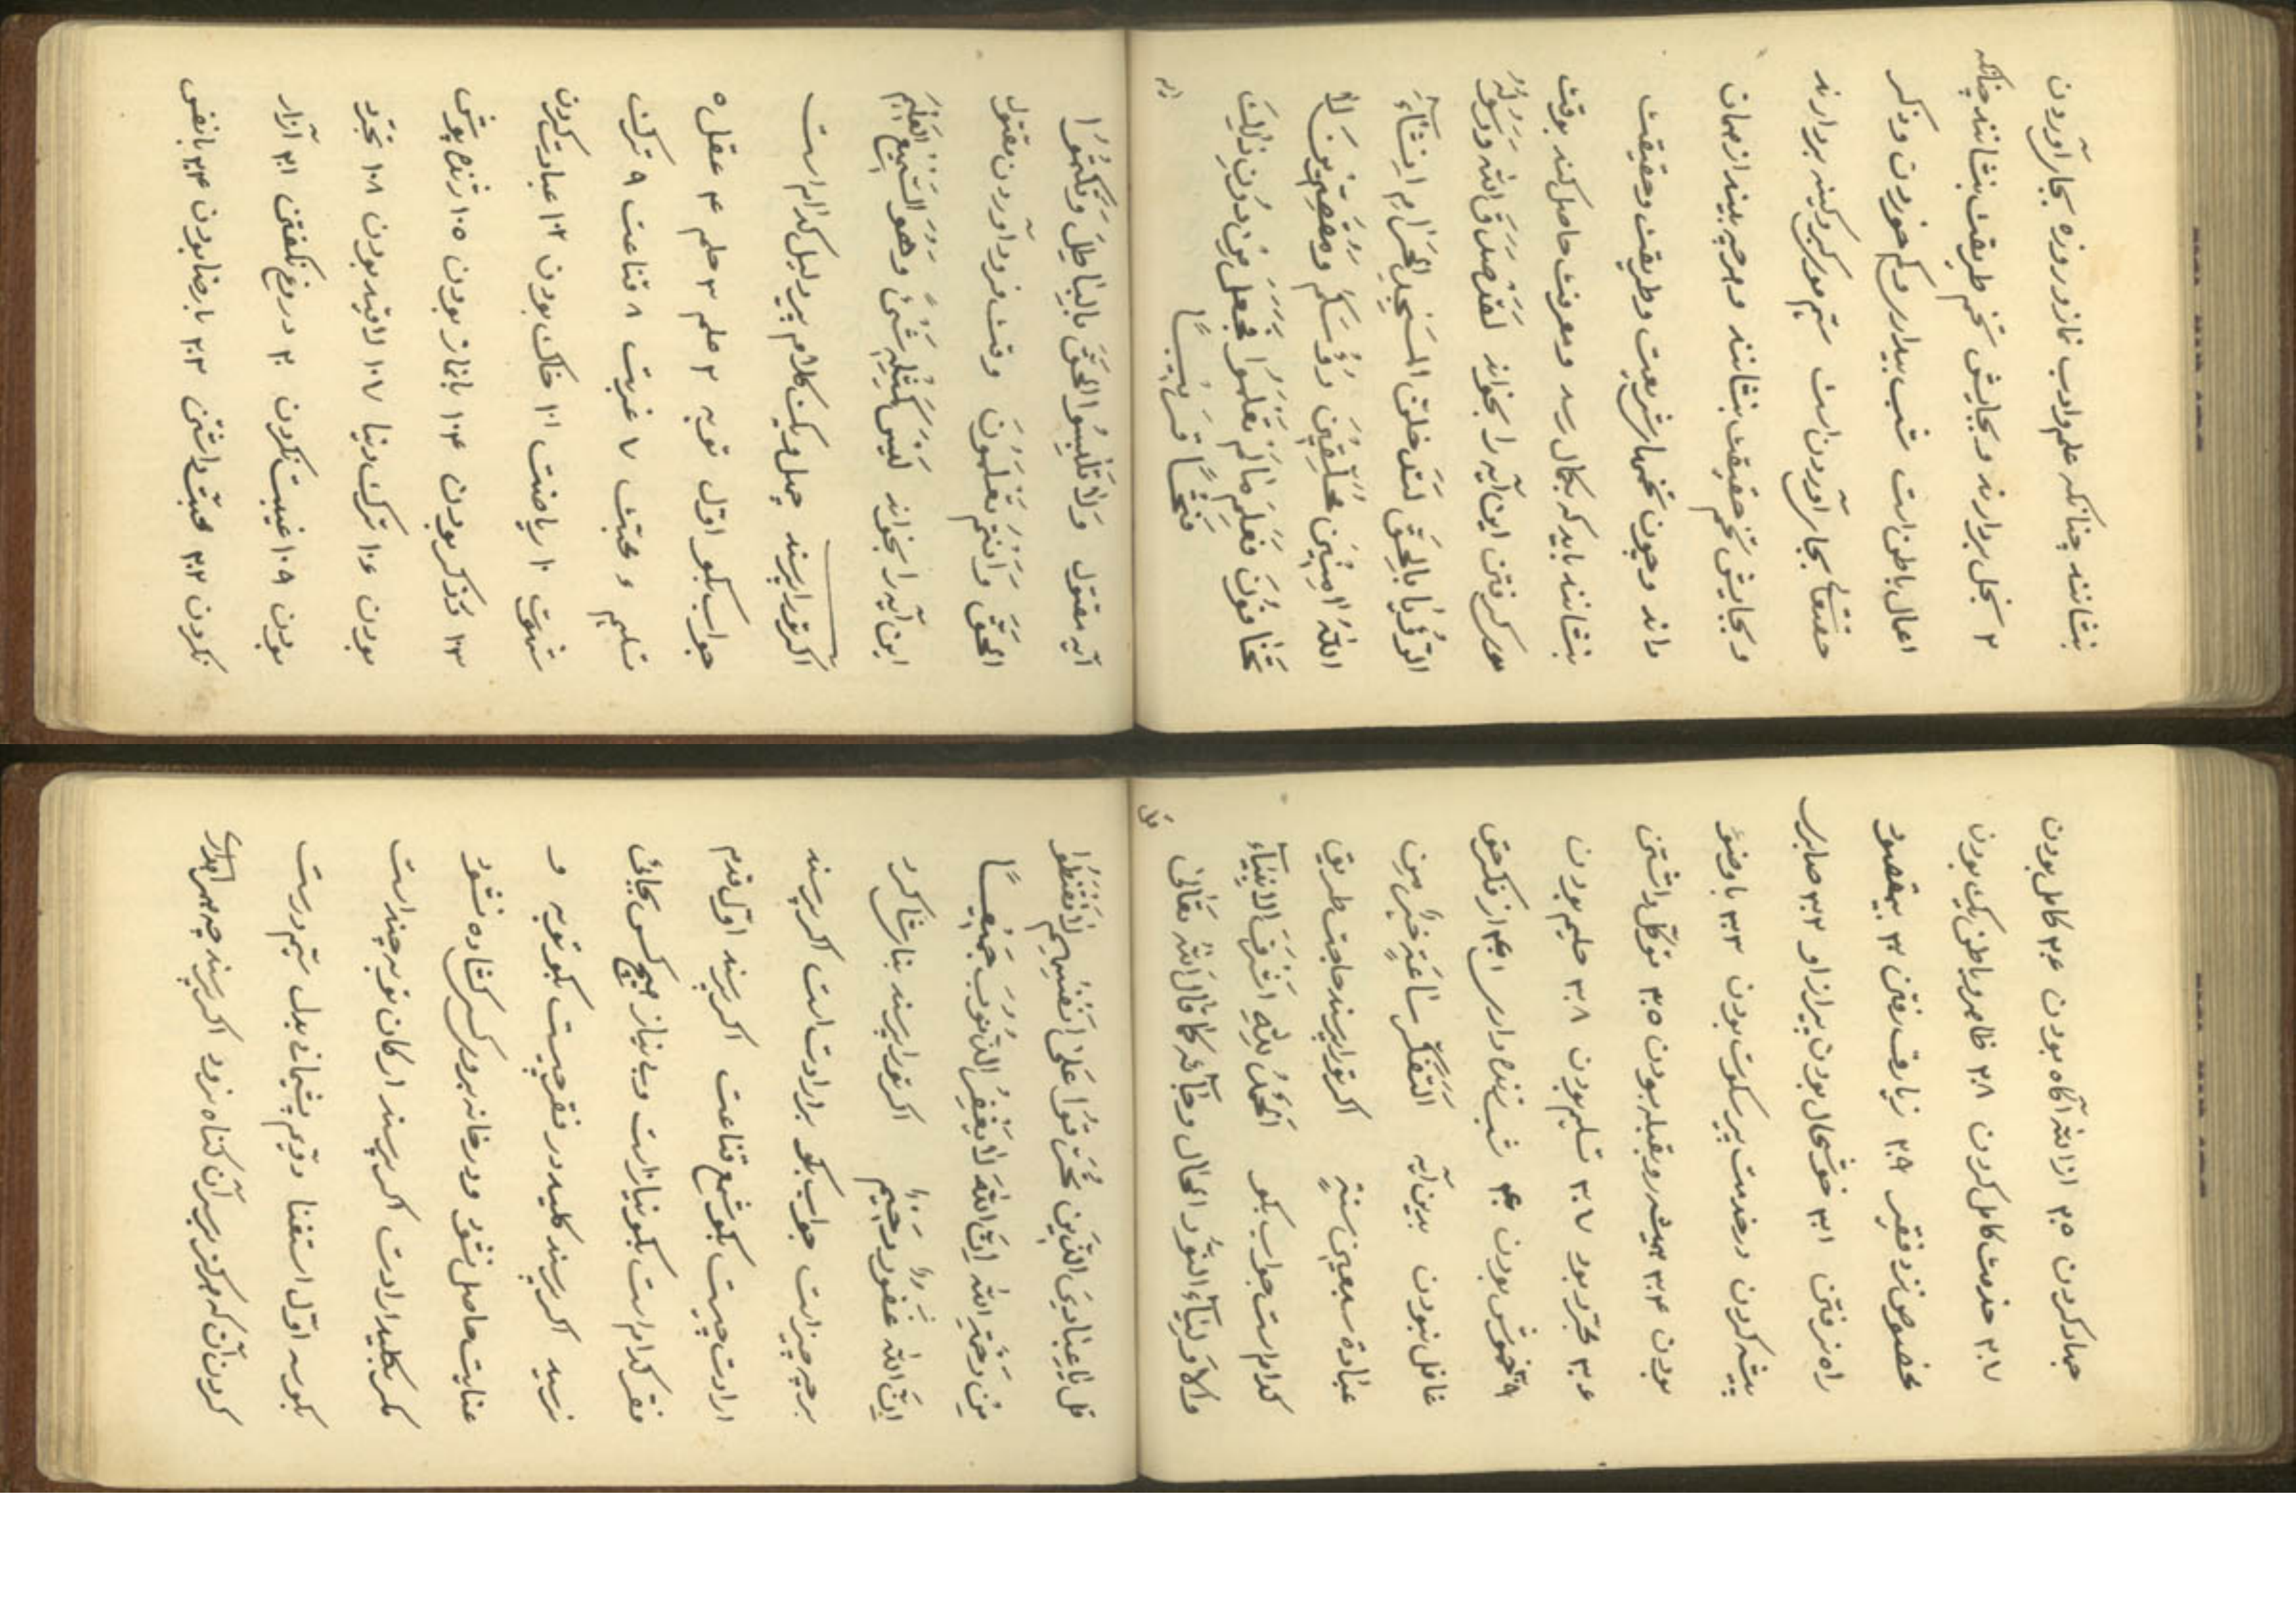 بنشانند چنانکه علم وادب نماز و روزه بجا آوردن
۲ بخل بردارند و بجایش تخم طریقت بنشانند چنانکه
اعمال باطن است شب بیداری و کم خوردن و ذکر
حقتعالی بجا آوردن است سیّم موی کبر و کینه بردارند
و بجایش تخم حقیقت بنشانند و هر چه بیند از همان
داند و چون تخمهای شریعت و طریقت و حقیقت
بنشانند باید که بکمال رسد و معرفت حاصل کند بوقت
موی کرفتن این آیه را بخواند لَقَدْ صَدَقَ اللّٰه وَرَسُولَهُ
الرُّؤْیٰا بِالحَقِّ لَتَدخُلَنَّ المَسْجِدَ الحَرٰامِ اِنشٰآءَ
اللّٰهُ اٰمِنینَ مُحَلِّقِینَ رُؤُسَکُم وَمُقَصِّرینَ لٰا
تَخٰافُونَ فَعَلِمَ مٰا لَم تَعْلَمُوا فَجَعَلَ مِنْ دُونِ ذٰلِکَ
فَتْحًا قَریبًا
آیه
آیه مقتول وَلٰا تَلْبِسُوا الحَقَّ بِالبٰاطِلِ وَتَکْتُمُوا
الحَقَّ وَاَنْتُم تَعْلَمُونَ وقت فرود آوردن مقتول
این آیه را بخواند لَیْسَ کَمِثْلِهِ شَیْءٌ وَهُوَ السَّمِیعُ العَلِیم
اکر تورا پرسند چهل و یک کلام پیر دلیل کدام است
جواب بکو اوّل توبه ۲ علم ۳ حلم ۴ عقل ۵
تسلیم ۶ محبّت ۷ غربت ۸ قناعت ۹ ترک
شهوت ۱۰ ریاضت ۱۰۱ خاک بودن ۱۰۲ عبادت کردن
۱۰۳ ذکر بودن ۱۰۴ بانماز بودن ۱۰۵ ژنده پوش
بودن ۱۰۶ ترک دنیا ۱۰۷ لاقید بودن ۱۰۸ مجرّد
بودن ۱۰۹ غیبت نکردن ۲۰ دروغ نکفتن ۲۰۱ آزار
نکردن ۲۰۲ محبّت داشتن ۲۰۳ با رضا بودن ۲۰۴ با نفس
جهاد کردن ۲۰۵ از اللّه آکاه بودن ۲۰۶ کامل بودن
۲۰۷ خدمت کامل کردن ۲۰۸ ظاهر و باطن یکی بودن
مخصوص نزد فقیر ۲۰۹ زیارت رفتن ۳۰ بیمقصود
راه نرفتن ۳۰۱ خوشحال بودن پیر از او ۳۰۲ صابری
پیشه کردن در خدمت پیر سکوت بودن ۳۰۳ با وضو
بودن ۳۰۴ همیشه رو بقبله بودن ۳۰۵ توکّل داشتن
۳۰۶ مجرّد بود ۳۰۷ تسلیم بودن ۳۰۸ حلیم بودن
۳۰۹ خموش بودن ۴۰ شب زنده داری ۴۰۱ از فکر حق
غافل نبودن بدین آیه التَّفَکُّر سٰاعَةٍ خَیرٌ مِن
عِبٰادَة سبعین سنةٍ اکر تورا پرسند حاجت طریق
کدام است جواب بکو اَلحَمْدُ لِلّٰهِ اَشرَفَ الاَنبِیٰآء
والاَولیٰآء النُّور الحال وجٰآئَه کما قال اللّٰه تعالی
قل
قل یٰا عِبٰادِیَ الذّین اَسْرَفُوا عَلیٰ اَنْفُسِهِم لٰا تَقْنَطُوا
مِنْ رَحْمَةِ اللّٰهِ اِنَّ اللّٰهَ لٰا یَغْفِرُ الذُّنُوبَ جَمیعًا
اِنَّ اللّٰهَ غَفُورٌ رَحِیم اکر تورا پرسند بنای شاکرد
بر چه چیز است جواب بکو بر ارادت است اکر پرسند
ارادت چیست بکو شمع قناعت اکر پرسند اوّل قدم
فقر کدام است بکو نیاز است و بی نیاز هیچ کس بجائی
نرسید اکر پرسند کلید در فقر چیست بکو توبه و
عنایت حاصل نشود و در خانه بر وی کسی کشاده نشود
مکر بکلید ارادت اکر پرسند ارکان توبه چند است
بکو سه اوّل استغفا دویم پشیمانی بدل سیّم درست
کردن آن که هرکز بر سر آن کناه نرود اکر پرسند چه